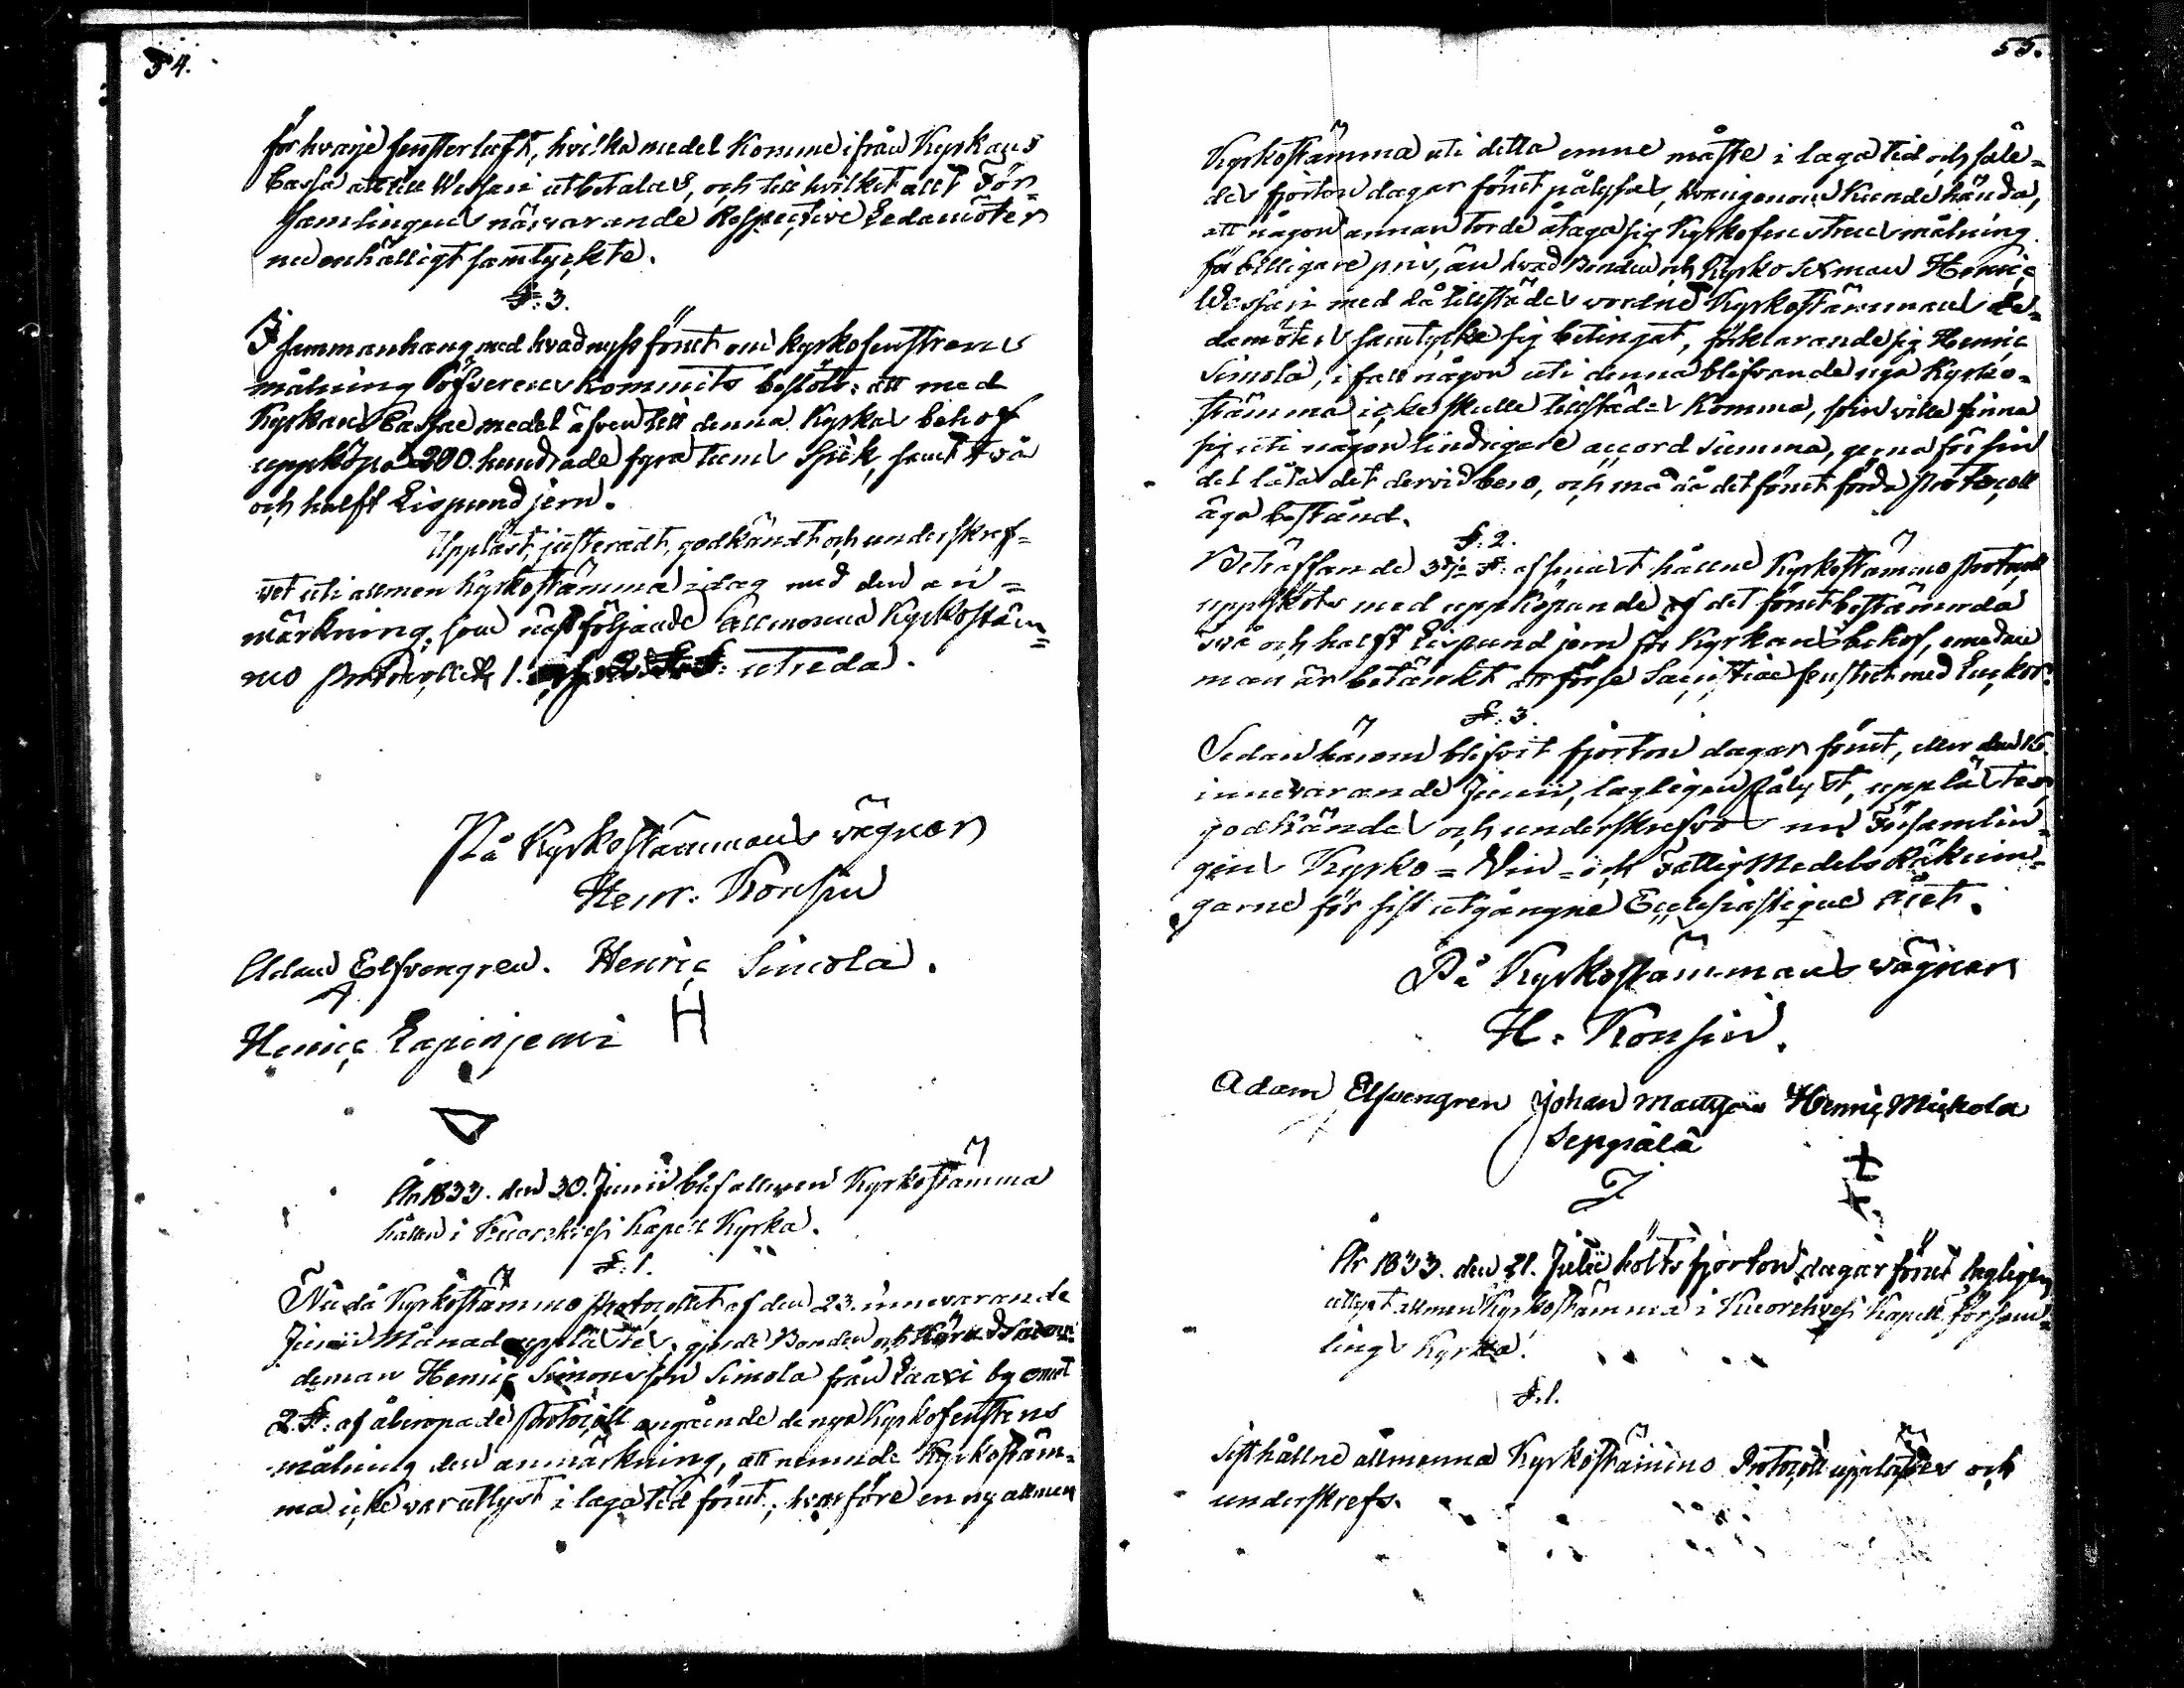 54.
för hvarje fensterluft, hvilka medel komme ifrån Kyrkans
Cassa att till Wessari utbetalas, och till hvilket allt För-
samlingens närvarande Respective Ledamöter
nu enhälligt samtyckte.
§: 3.
I sammanhang med hvad nyss förut om kyrkofenstrens
målning öfverens kommits beslöts: att med
Kyrkans Cassae medel äfven till denna Kyrkas behof
uppköpa 200. hundrade fyra tums Spik, samt två
och halft Lispund jern.
Uppläst, justeradt, godkändt och underskref-
vet uti allmen kyrkostämma idag med den an-
märkning, som näst följande Allmenna Kyrkostäm-
mo Protocollets 1. och 2. §.§: utreda.
På Kyrkostämmans vägnar
Henr. Konsin
Adam Elfvengren. Henric Simola.
H
Henric Lapinjemi
År 1833. den 30. Junii blef allmen Kyrkostämma
hållen i Kuorekoski Kapell Kyrka.
§: 1.
Nu då Kyrkostämmo Protocollet af den 23. innevarande
Junii Månad upplästes, gjorde Bonden och
deman Henric Simonsson Simola från Laaxi by emot
2 §: af åberopade Protocoll angående de nya Kyrkofenstrens
målning den anmärkning, att nemnde Kyrkostäm-
ma icke var utlyst i laga tid förut; hvarföre en ny allmen
55.
Kyrkostämma uti detta emne måste i laga tid, och såle-
des fjorton dagar förut pålysas, hvarigenom kunde hända,
att någon annan torde åtaga sig Kyrkofenstrens målning
för billigare pris, än hvad Bonden och Kyrko Sexman Henric
Wessari med då tillstädes vordne Kyrkostämmans Le-
damöters samtycke sig betingat, förklarande sig Henric
Simola, i fall någon uti denna blifvande nya Kyrko-
stämma icke skulle tillstädes komma, som ville finna
sig uti någon lindrigare accord summa, gerna för sin
del låta det dervid bero, och må då det förut förda Protocoll
äga bestånd.
§: 2.
Beträffande 3dje §: af senast hållne Kyrkostämmo Protocoll
uppskötes med uppköpande af det förut bestämmda
två och halft Lispund jern för Kyrkans behof, emedan
man är betänkt att förse Sacristiae fenstret med Luckor.
§: 3.
Sedan härom blifvit fjorton dagar förut, eller den 16.
innevarande Junii, lagligen pålyst, upplästes,
godkändes och underskrefvos nu Församlin-
gens Kyrko- Vin- och Fattig Medels Räknin-
garne för sist utgångne Ecclesiastique året.
På Kyrkostämmans vägnar
H. Konsin.
Adam Elfvengren Johan Mattsson Henric Mickola
Seppälä
År 1833. den 21. Julii hölts fjorton dagar förut lagligen
utlyst allmen Kyrkostämma i Kuorekoski Kapell Försam-
lings Kyrka.
§. 1.
Sist hållne allmenna Kyrkostämmo Protocoll upplästes och
underskrefs.